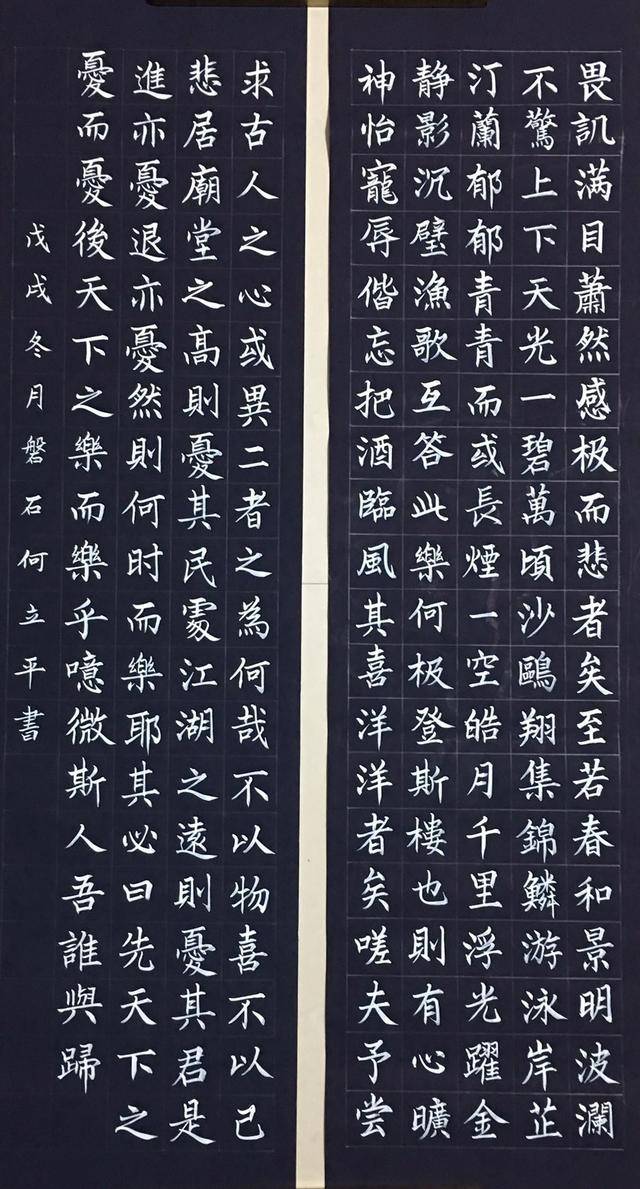 畏訊满目蕭然感极而悲者矣至若春和景明波瀾
不驚上下天光一碧萬頃沙鷗翔集錦鱗游泳岸芷
汀蘭郁郁青青而或長煙一空皓月千里浮光躍金
静影沉璧漁歌互答此樂何极登斯樓也則有心曠
神怡寵辱偕忘把酒臨風其喜洋洋者矣嗟夫予尝
求古人之心或異二者之為何哉不以物喜不以己
悲居廟堂之高則憂其民處江湖之遠則憂其君是
進亦憂退亦憂然則何时而樂耶其必曰先天下之
憂而憂後天下之樂而樂乎噫微斯人吾誰與歸
戊戌冬月磐石何立平書